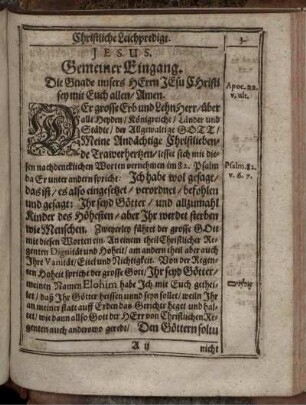 Christliche Leichpredigt. 3
JESUS.
Gemeiner Eingang.
Die Gnade unsers HErrn JEsu CHristi
sey mit Euch allen/ Amen.
Apoc. 22.
v. ult.
DEr grosse Erb und LehnHerr/ über
alle Heyden/ Königreiche/ Länder und
Städte/ der Allgewaltige GOTT/
Meine Andächtige Christlieben-
de Trawerhertzen/ lesset sich mit die-
sen nachdencklichen Worten vernehmen im 82. Psalm
Psalm. 82.
v. 6. 7.
da Er unter andern spricht: Ich habe wol gesagt/
das ist/ es also eingesetzet/ verordnet/ befohlen
und gesagt: Ihr seyd Götter/ und allzumahl
Kinder des Höhesten/ aber Ihr werdet sterben
wie Menschen. Zweyerley führet der grosse GOtt
mit diesen Worten ein. An einem theil Christlicher Re-
genten Dignität und Hoheit/ am andern theil aber auch
Ihre Vanität/ Eitel und Nichtigkeit. Von der Regen-
ten Hoheit spricht der grosse Gott/ Ihr seyd Götter/
meinen Namen Elohim habe Ich mit Euch getheilet/
daß Ihr Götter heissen unnd seyn sollet/ weiln Ihr
an meiner statt auff Erden das Gerichte heget und hal-
tet/ wie dann allso Gott der HErr von Christlichen Re-
genten auch anderswo geredt/ Den Göttern soltu
A ij
nicht